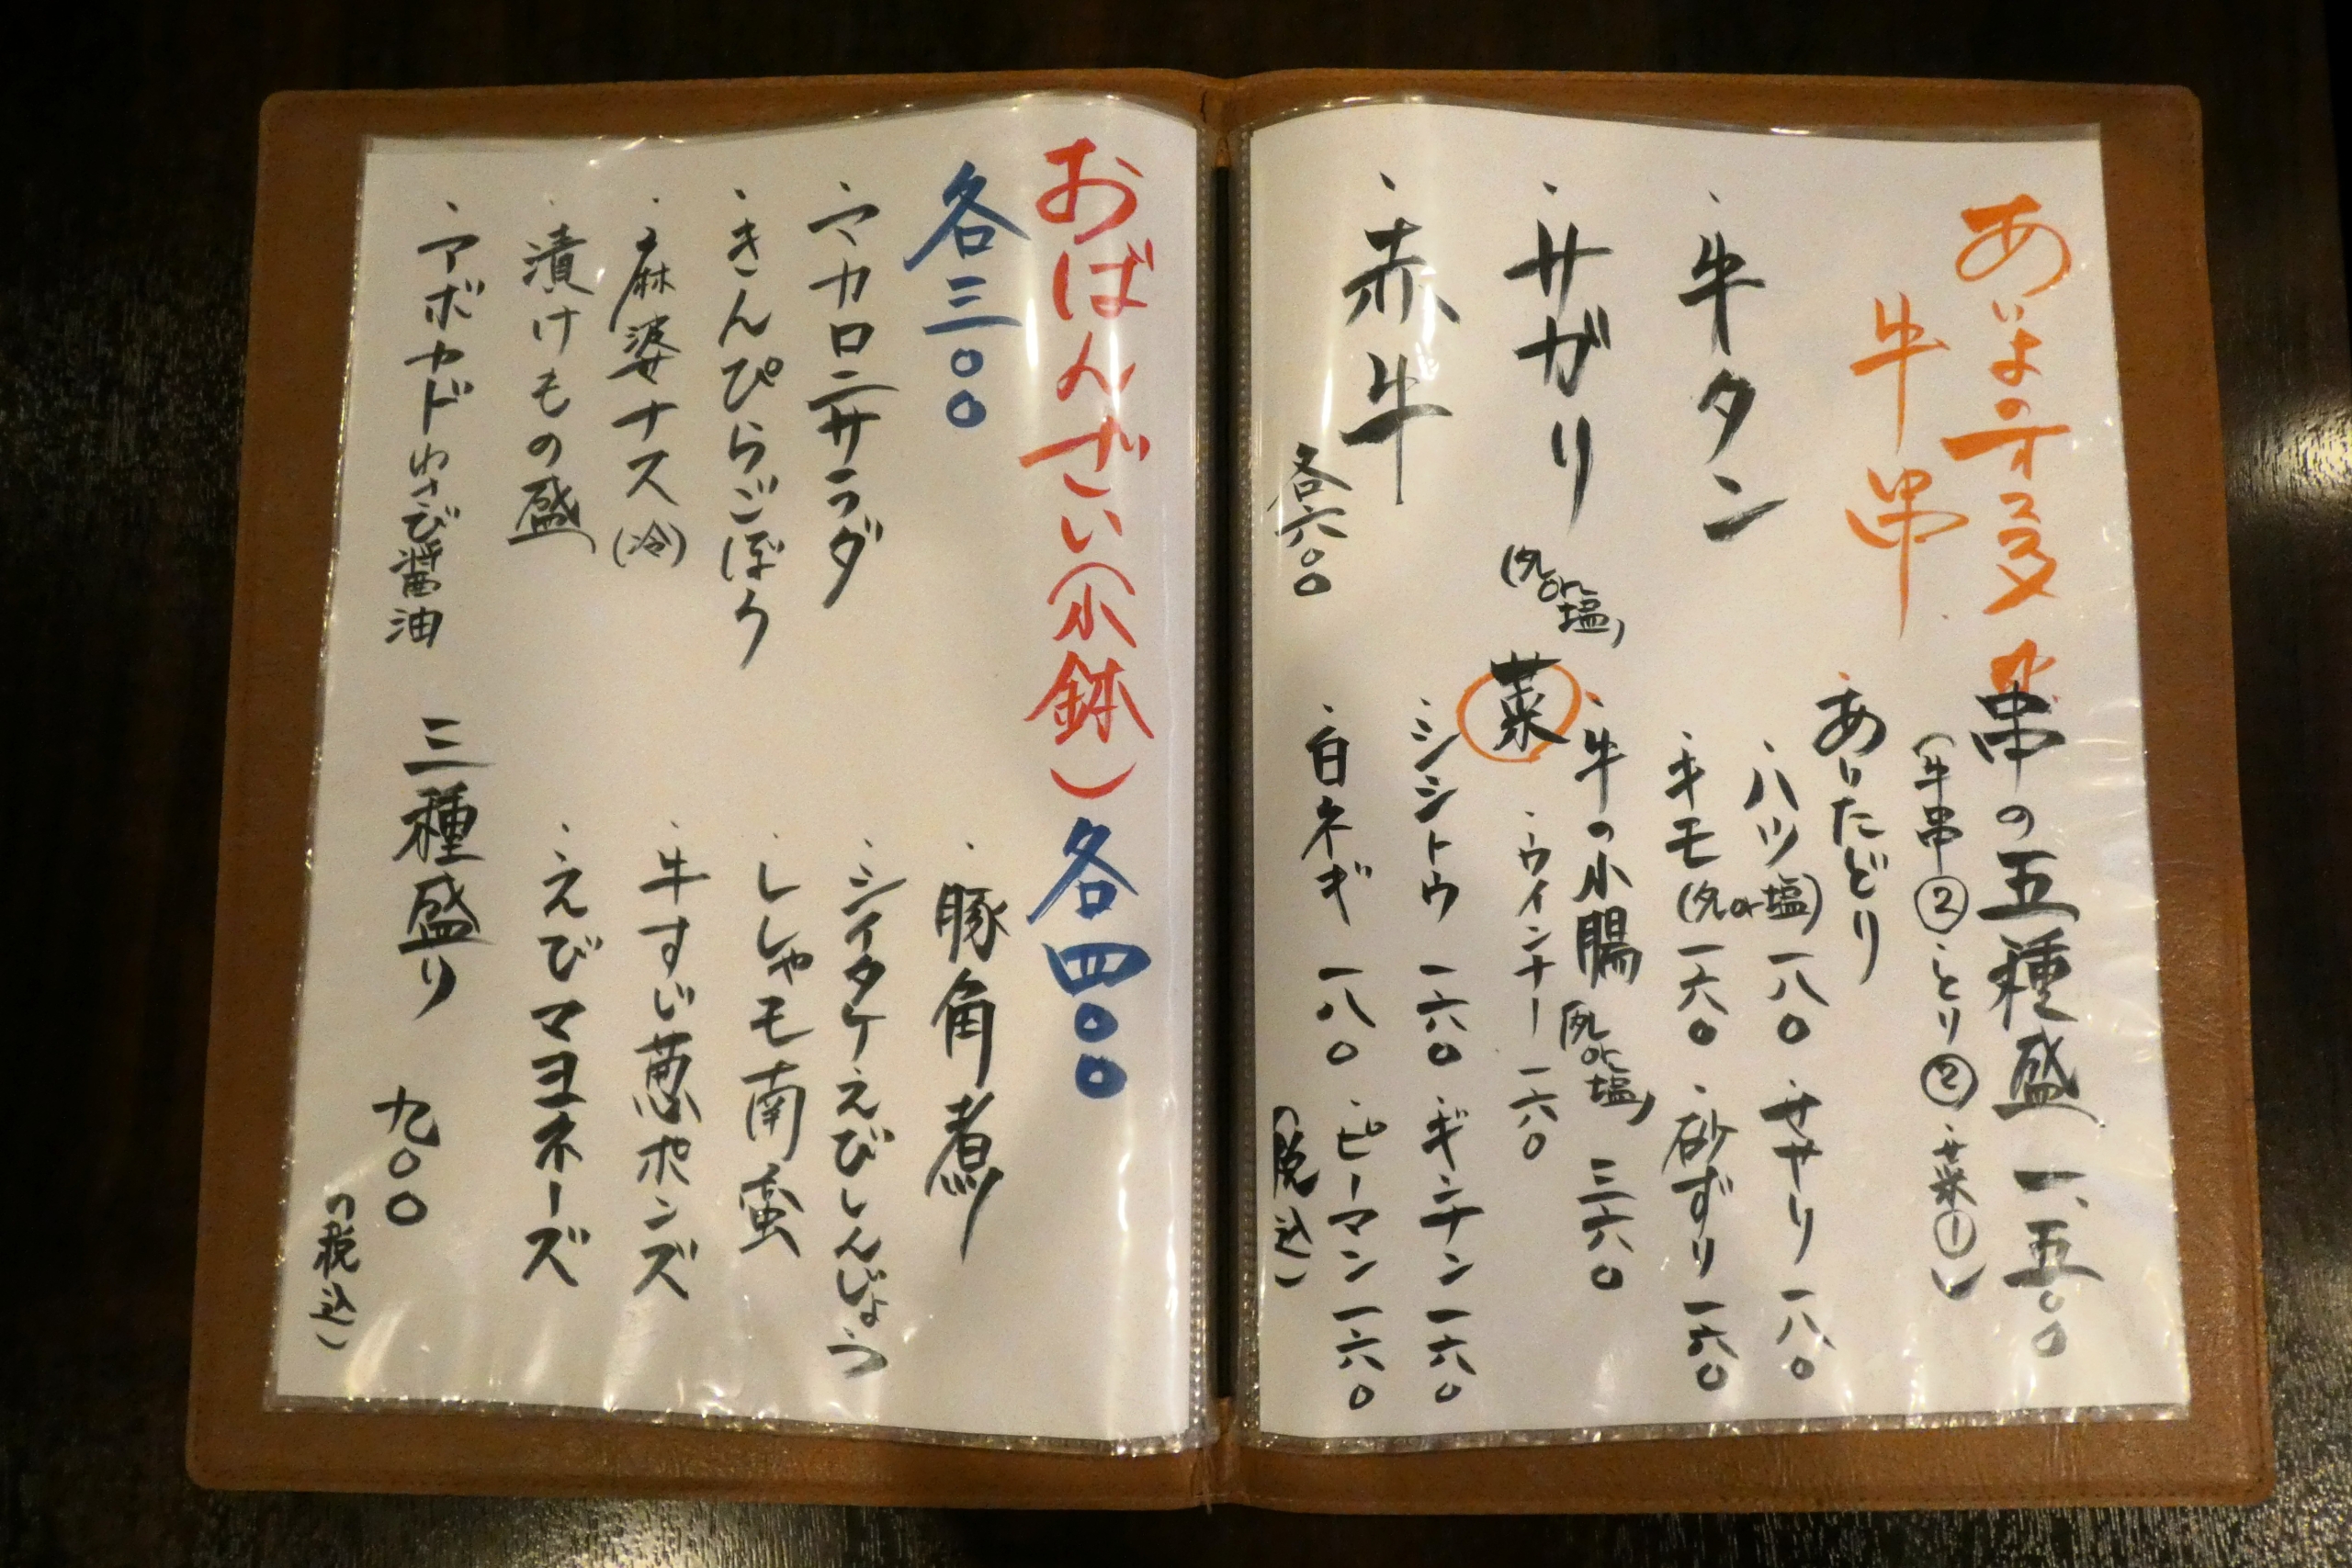 あいよのオススメ串
牛串
・牛タン
・サガリ
(タレor塩)
・赤牛
各六〇〇
串の五種盛 一、五〇〇
(牛串②・とり②・菜①)
ありたどり
・ハツ(タレor塩)一八〇
・ササリ 一八〇
・キモ(タレor塩)一六〇
・砂ずり 一六〇
・牛の小腸(タレor塩) 三六〇
菜
・ウインナー 一六〇
・シシトウ 一六〇
・ギンナン 一六〇
・白ネギ 一八〇
・ピーマン 一六〇
(税込)
おばんざい(小鉢)
各三〇〇
・マカロニサラダ
・きんぴらごぼう
・麻婆ナス(冷)
・漬けもの盛
・アボカドわさび醤油
各四〇〇
・豚角煮
・シイタケえびしんじょう
・ししゃモ南蛮
・牛すじ葱ポンズ
・えびマヨネーズ
三種盛り 九〇〇
(税込)